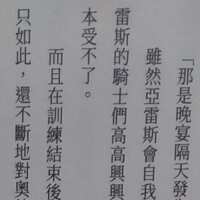 「那是晚宴隔天發
雖然亞雷斯會自我
雷斯的騎士們高高興興
本受不了。
而且在訓練結束後
只如此，還不斷地對奧